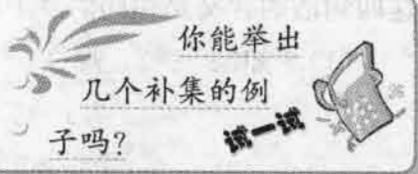 你能举出
几个补集的例
子吗?
试一试